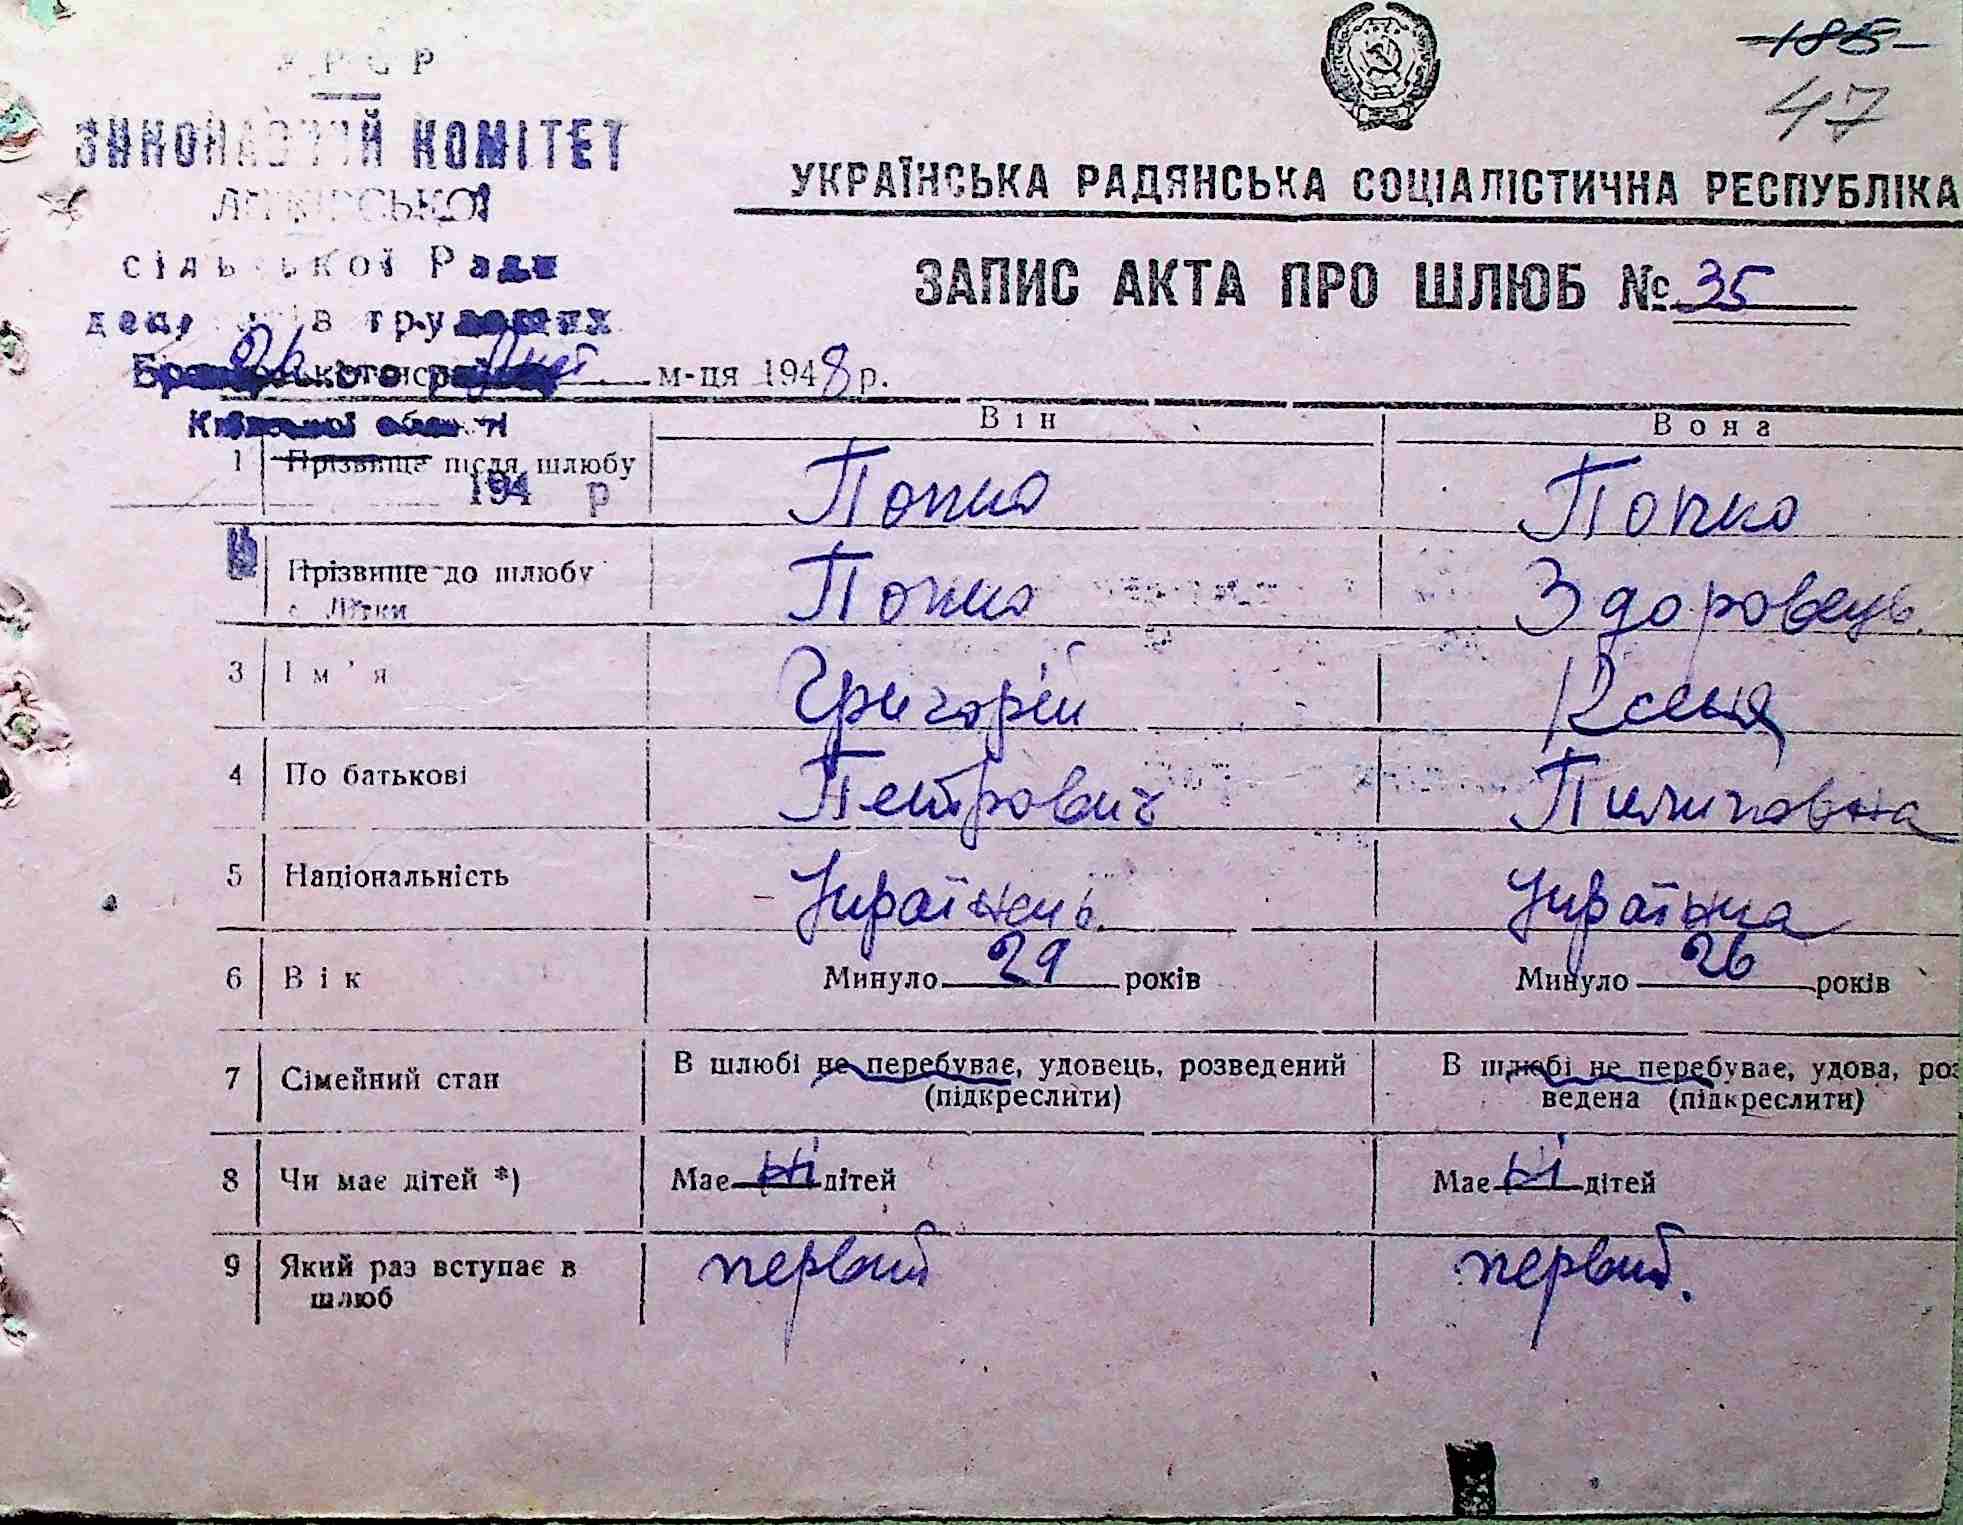 УРСР
185
47
ВИКОНАВЧИЙ КОМІТЕТ
ЛІТКІВСЬКОЇ
сільської Ради
депутатів трудящих
УКРАЇНСЬКА РАДЯНСЬКА СОЦІАЛІСТИЧНА РЕСПУБЛІКА
ЗАПИС АКТА ПРО ШЛЮБ № 35
м-ця 1948 р.
Київської області
Він Вона
1 Прізвище після шлюбу Попко Попко
194 р
Прізвище до шлюбу Попко Здоровець
с. Літки
3 Ім'я Григорій Ксенія
4 По батькові Петрович Пилиповна
5 Національність Українець Українка
6 Вік Минуло 29 років Минуло 26 років
7 Сімейний стан В шлюбі не перебуває, удовець, розведений В шлюбі не перебуває, удова, роз
(підкреслити) ведена (підкреслити)
8 Чи має дітей *) Має ні дітей Має ні дітей
9 Який раз вступає в первий первий.
шлюб